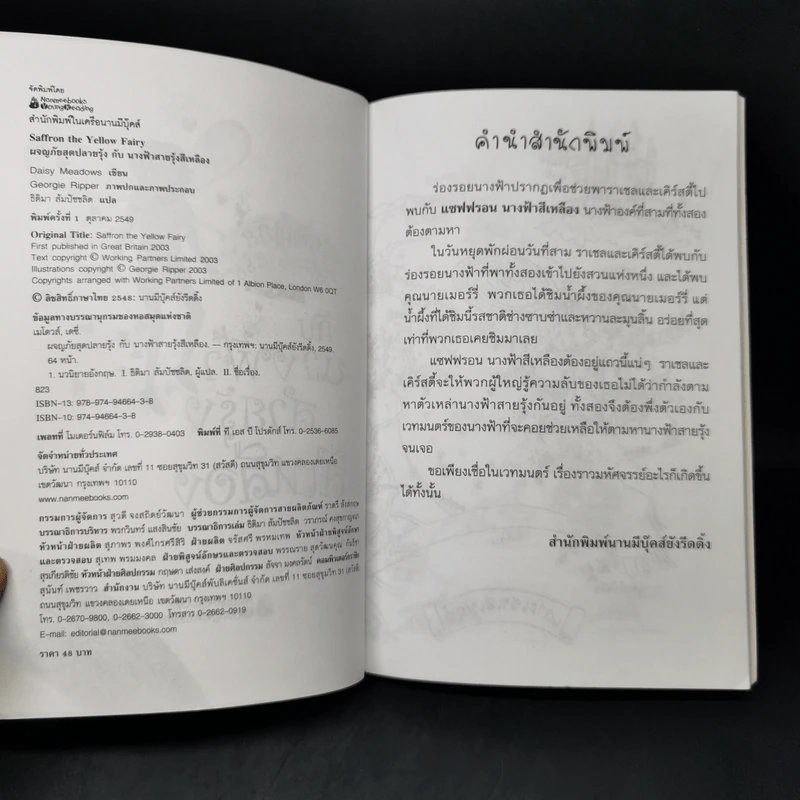 จัดพิมพ์โดย
Nanmeebooks
YoungReading
สำนักพิมพ์ในเครือนานมีบุ๊คส์
Saffron the Yellow Fairy
ผจญภัยสุดปลายรุ้ง กับ นางฟ้าสายรุ้งสีเหลือง
Daisy Meadows เขียน
Georgie Ripper ภาพปกและภาพประกอบ
ธิติมา สัมปัชชลิต แปล
พิมพ์ครั้งที่ 1 ตุลาคม 2549
Original Title: Saffron the Yellow Fairy
First published in Great Britain 2003
Text copyright © Working Partners Limited 2003
Illustrations copyright © Georgie Ripper 2003
Copyrights arranged with Working Partners Limited of 1 Albion Place, London W6 0QT
© ลิขสิทธิ์ภาษาไทย 2548: นานมีบุ๊คส์ยังรีดดิ้ง
ข้อมูลทางบรรณานุกรมของหอสมุดแห่งชาติ
เมโดวส์, เดซี่.
ผจญภัยสุดปลายรุ้ง กับ นางฟ้าสายรุ้งสีเหลือง. — กรุงเทพฯ: นานมีบุ๊คส์ยังรีดดิ้ง, 2549.
64 หน้า.
1. นวนิยายอังกฤษ. I. ธิติมา สัมปัชชลิต, ผู้แปล. II. ชื่อเรื่อง.
823
ISBN-13: 978-974-94664-3-8
ISBN-10: 974-94664-3-8
เพลทที่ โมเดอร์นฟิล์ม โทร. 0-2938-0403 พิมพ์ที่ ที เอส บี โปรดักส์ โทร. 0-2536-6085
จัดจำหน่ายทั่วประเทศ
บริษัท นานมีบุ๊คส์ จำกัด เลขที่ 11 ซอยสุขุมวิท 31 (สวัสดี) ถนนสุขุมวิท แขวงคลองเตยเหนือ
เขตวัฒนา กรุงเทพฯ 10110
www.nanmeebooks.com
กรรมการผู้จัดการ สุวดี จงสถิตย์วัฒนา ผู้ช่วยกรรมการผู้จัดการสายผลิตภัณฑ์ ราตรี
บรรณาธิการบริหาร พรกวินทร์ แสงสินชัย บรรณาธิการเล่ม ธิติมา สัมปัชชลิต วราภรณ์
หัวหน้าฝ่ายผลิต สุภาพร พงศ์ไกรศรีสิริ ฝ่ายผลิต จรัสศรี พรหมเทพ หัวหน้าฝ่ายพิสูจน์อักษร
และตรวจสอบ สุเทพ พรมมงคล ฝ่ายพิสูจน์อักษรและตรวจสอบ พรรณราย
สุรเกียรติชัย หัวหน้าฝ่ายศิลปกรรม กฤษดา เส่งสงค์ ฝ่ายศิลปกรรม สัจจา มงคลรัตน์ คอมพิวเตอร์กราฟิค
สุนันท์ เพชรวาว สำนักงาน บริษัท นานมีบุ๊คส์พับลิเคชั่นส์ จำกัด เลขที่ 11 ซอยสุขุมวิท 31 (สวัสดี)
ถนนสุขุมวิท แขวงคลองเตยเหนือ เขตวัฒนา กรุงเทพฯ 10110
โทร. 0-2670-9800, 0-2662-3000 โทรสาร 0-2662-0919
E-mail: editorial@nanmeebooks.com
ราคา 48 บาท
คำนำสำนักพิมพ์
ร่องรอยนางฟ้าปรากฏเพื่อช่วยพาราเชลและเคิร์สตี้ไป
พบกับ แซฟฟรอน นางฟ้าสีเหลือง นางฟ้าองค์ที่สามที่ทั้งสอง
ต้องตามหา
ในวันหยุดพักผ่อนวันที่สาม ราเชลและเคิร์สตี้ได้พบกับ
ร่องรอยนางฟ้าที่พาทั้งสองเข้าไปยังสวนแห่งหนึ่ง และได้พบ
คุณนายเมอร์รี่ พวกเธอได้ชิมน้ำผึ้งของคุณนายเมอร์รี่ แต่
น้ำผึ้งที่ได้ชิมนี้รสชาติช่างซาบซ่าและหวานละมุนลิ้น อร่อยที่สุด
เท่าที่พวกเธอเคยชิมมาเลย
แซฟฟรอน นางฟ้าสีเหลืองต้องอยู่แถวนี้แน่ๆ ราเชลและ
เคิร์สตี้จะให้พวกผู้ใหญ่รู้ความลับของเธอไม่ได้ว่ากำลังตาม
หาตัวเหล่านางฟ้าสายรุ้งกันอยู่ ทั้งสองจึงต้องพึ่งตัวเองกับ
เวทมนตร์ของนางฟ้าที่จะคอยช่วยเหลือให้ตามหานางฟ้าสายรุ้ง
จนเจอ
ขอเพียงเชื่อในเวทมนตร์ เรื่องราวมหัศจรรย์อะไรก็เกิดขึ้น
ได้ทั้งนั้น
สำนักพิมพ์นานมีบุ๊คส์ยังรีดดิ้ง